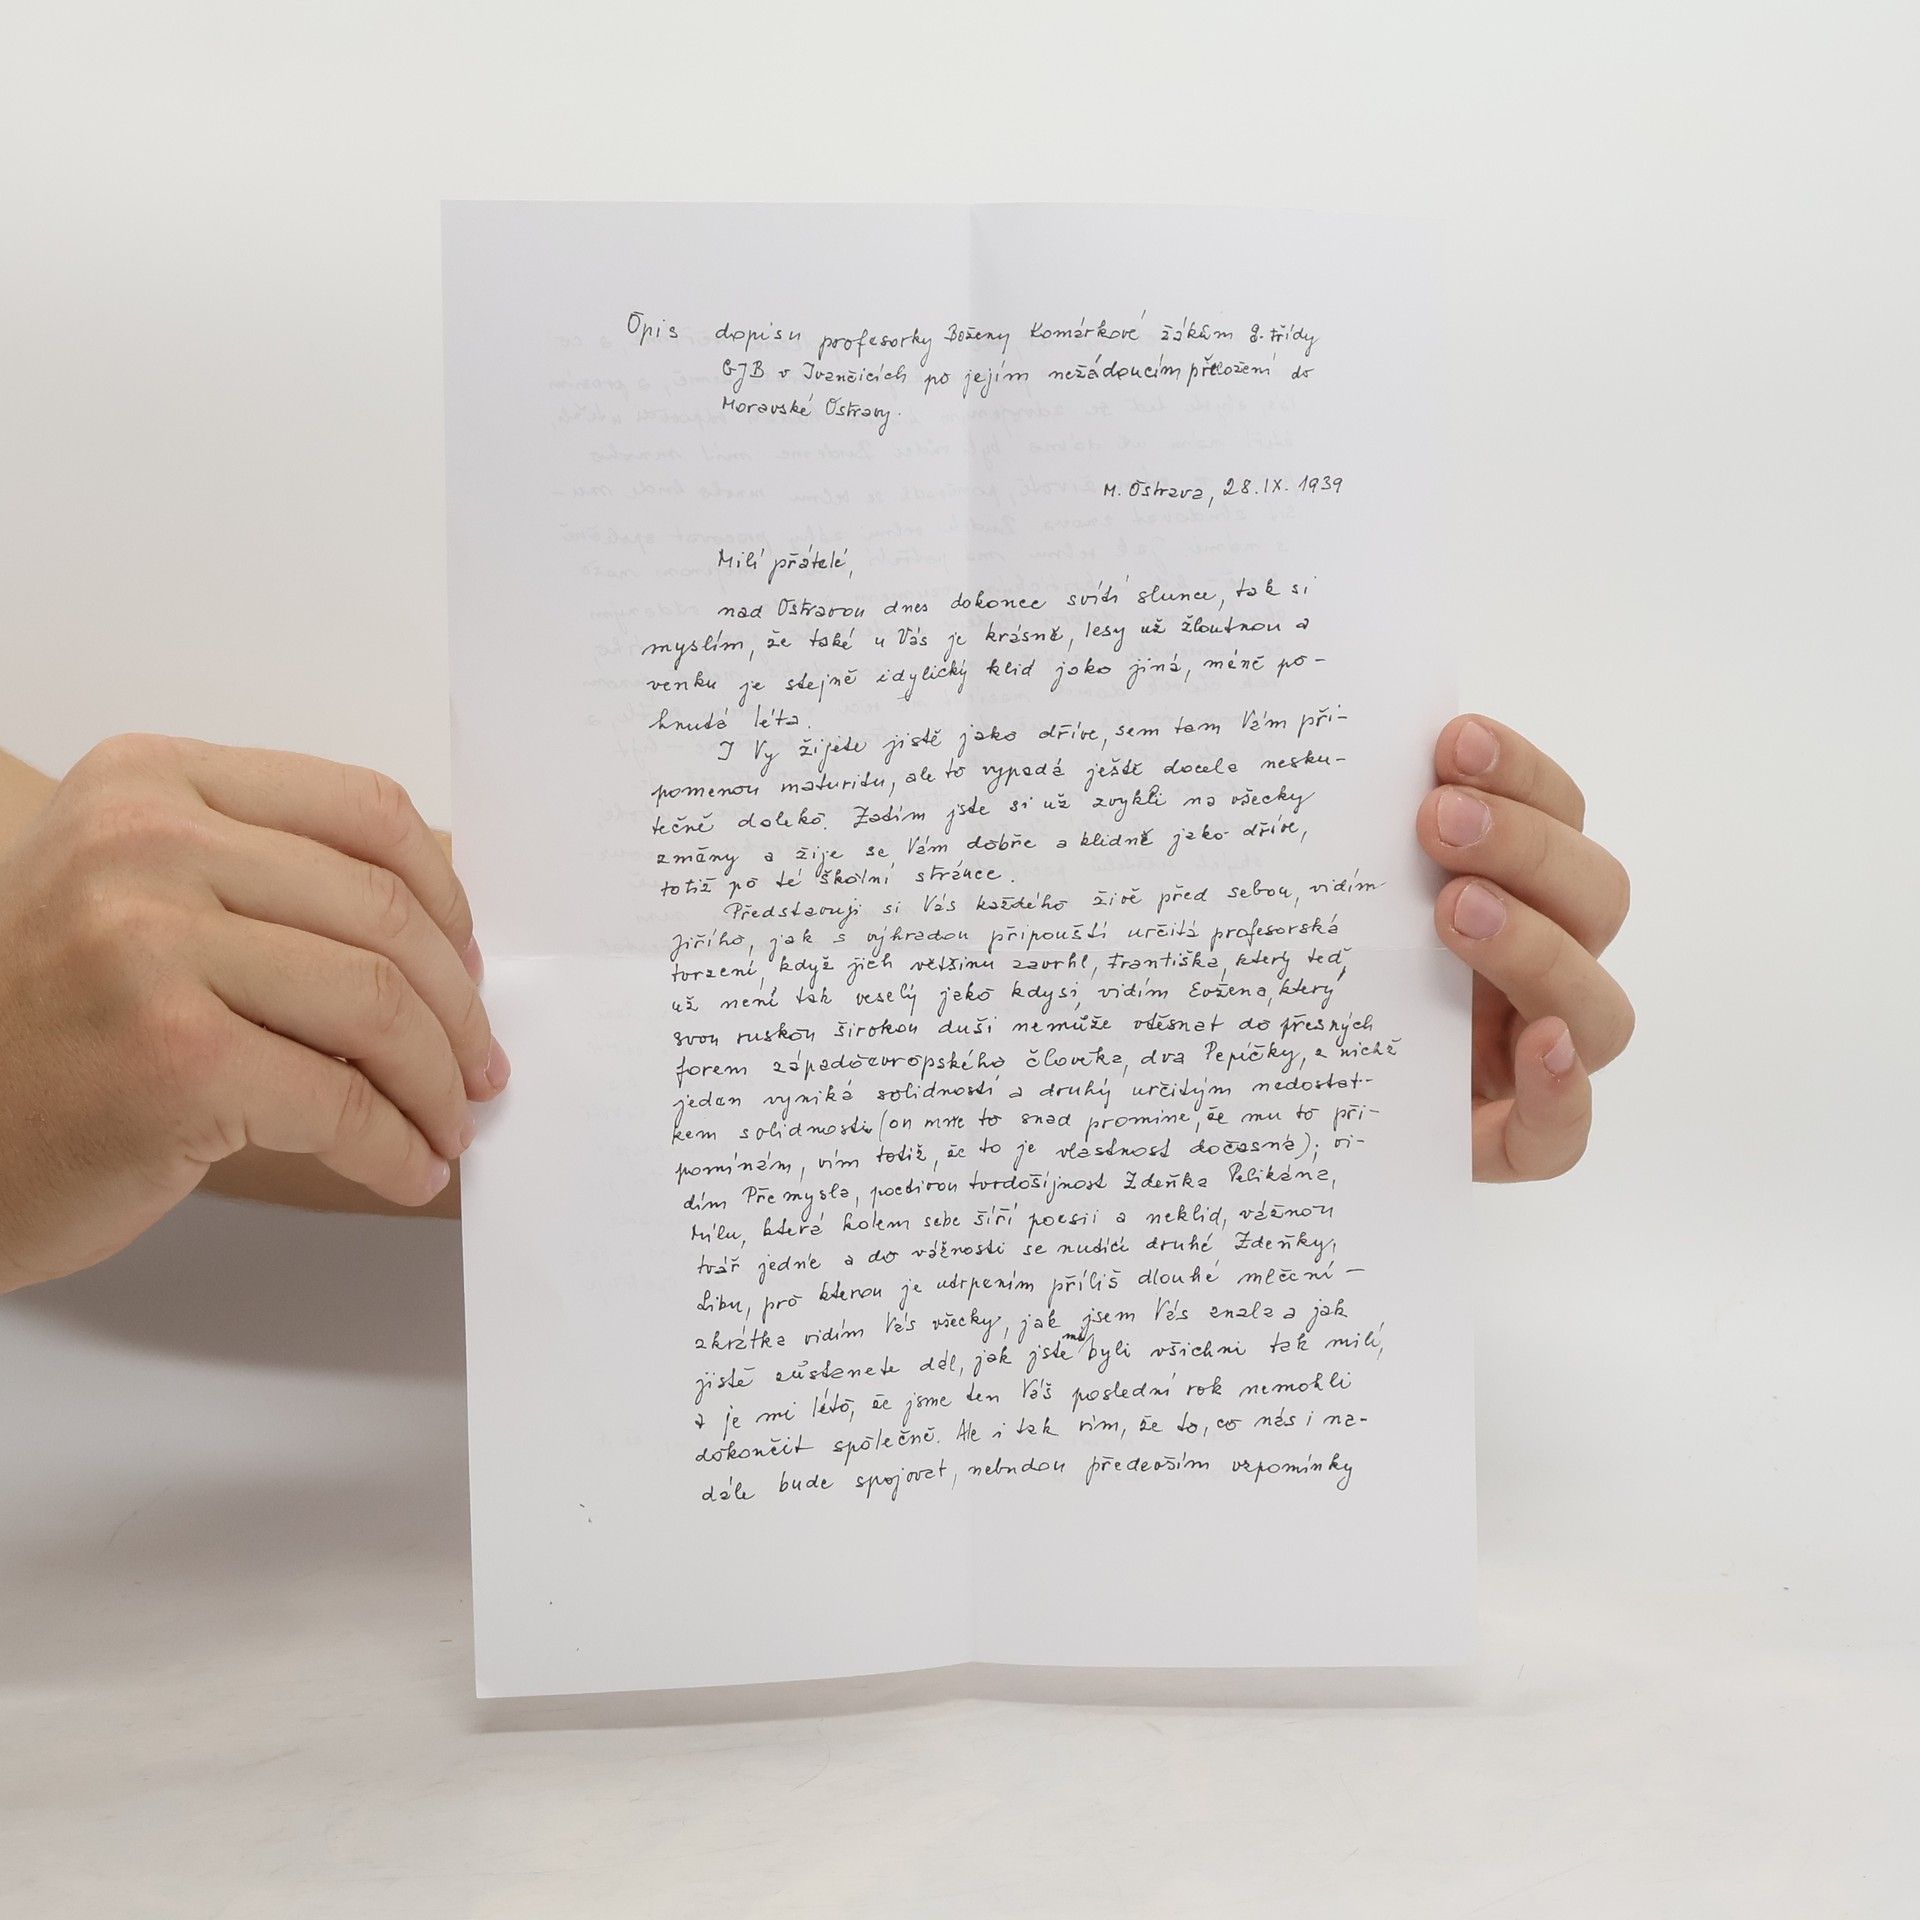 Opis dopisu profesorky Boženy Komárkové žákům 8. třídy
GJB v Ivančicích po jejím nežádoucím přeložení do
Moravské Ostravy.
M. Ostrava, 28.IX. 1939
Milí přátelé,
nad Ostravou dnes dokonce svítí slunce, tak si
myslím, že také u Vás je krásně, lesy už žloutnou a
venku je stejně idylický klid jako jiná, méně po-
hnutá léta.
I Vy žijete jistě jako dříve, sem tam Vám při-
pomenou maturitu, ale to vypadá ještě docela nesku-
tečně daleko. Zatím jste si už zvykli na všecky
změny a žije se Vám dobře a klidně jako dříve,
totiž po té školní stránce.
Představuji si Vás každého živě před sebou, vidím
Jiřího, jak s výhradou připouští určitá profesorská
tvrzení, když jich většinu zavrhl, Františka, který teď
už není tak veselý jako kdysi, vidím Evžena, který
svou ruskou širokou duši nemůže vtěsnat do přesných
forem západoevropského člověka, dva Pepíčky, z nichž
jeden vyniká solidností a druhý určitým nedostat-
kem solidnosti (on mne to snad promine, že mu to při-
pomínám, vím totiž, že to je vlastnost dočasná); vi-
dím Přemysla, poctivou tvrdošíjnost Zdeňka Pelikána,
Mílu, která kolem sebe šíří poesii a neklid, vážnou
tvář jedné a do vážnosti se nutící druhé Zdeňky,
Libu, pro kterou je utrpením příliš dlouhé mlčení –
zkrátka vidím Vás všecky, jak jsem Vás znala a jak
jistě zůstanete dál, jak jste mi byli všichni tak milí,
a je mi líto, že jsme ten Váš poslední rok nemohli
dokončit společně. Ale i tak vím, že to, co nás i na-
dále bude spojovat, nebudou především vzpomínky